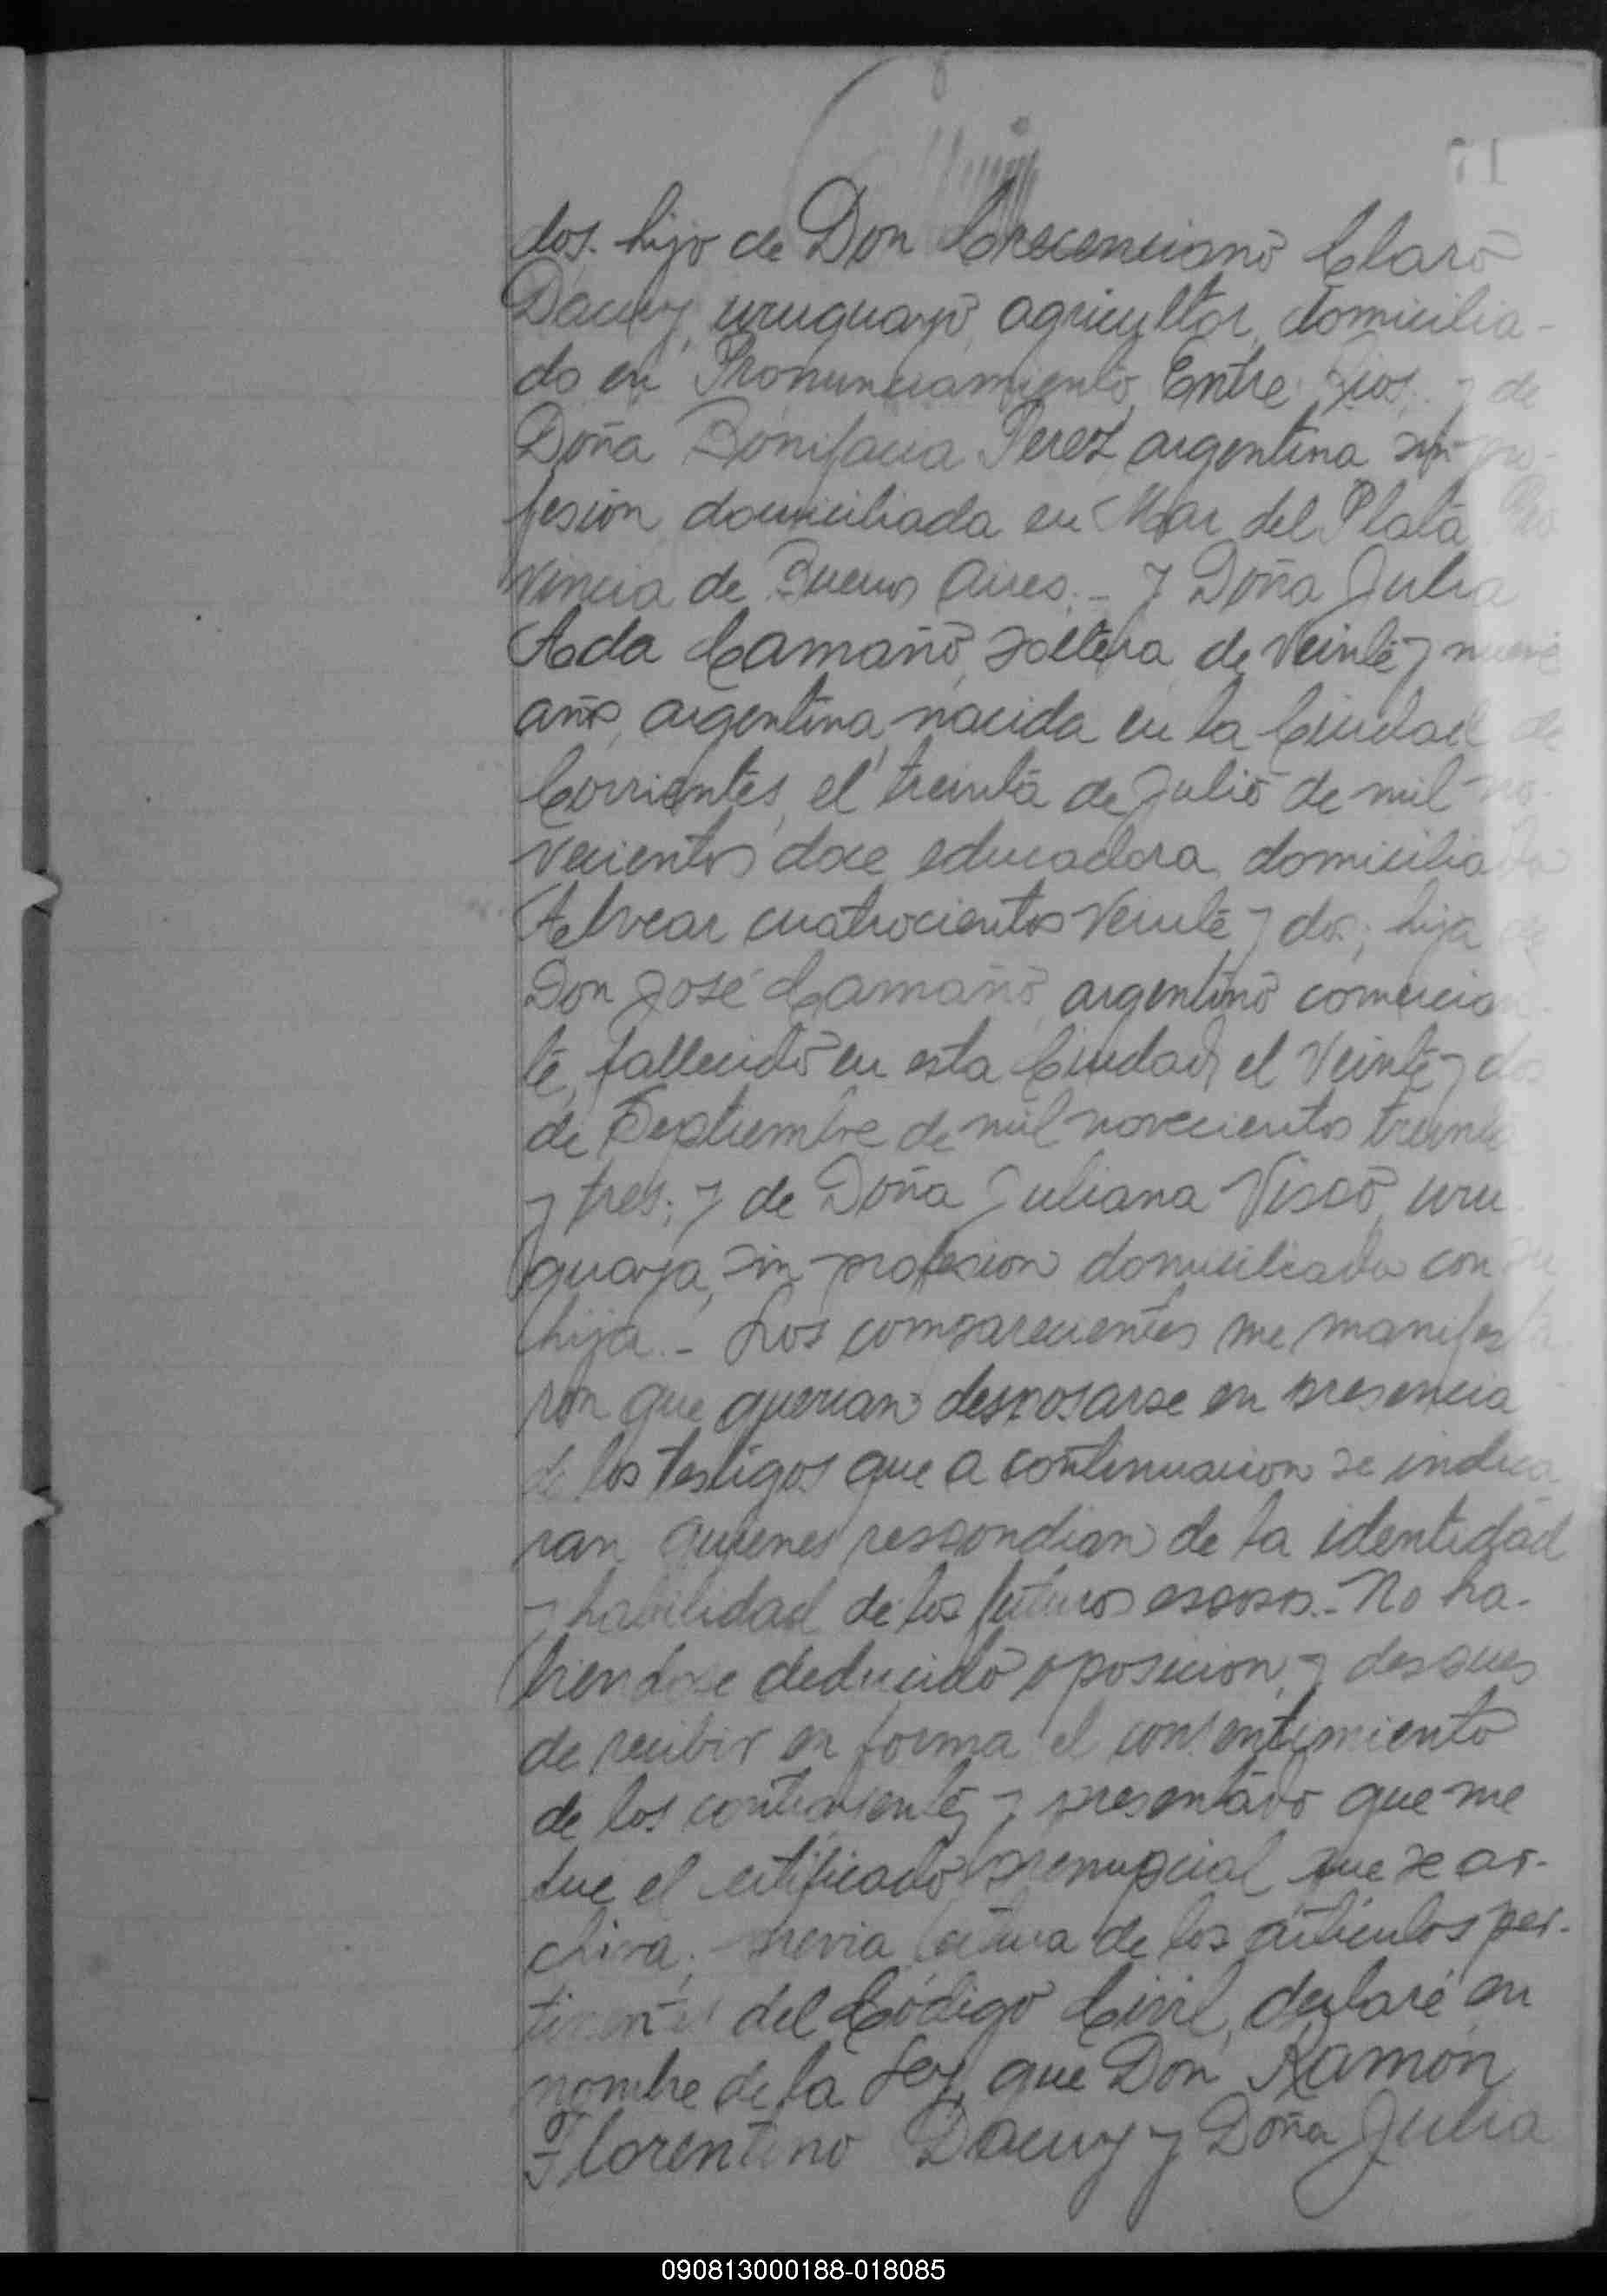 71
dos. hijo de Don Crescenciano Claro
Dacuy, uruguayo, agricultor, domicilia-
do en Pronunciamiento, Entre Rios; y de
Doña Bonifacia Perez, argentina sin pro-
fesion, domiciliada en Mar del Plata, Pro
vincia de Buenos Aires.- y Doña Julia
Ada Camaño, soltera, de veinte y nueve
años, argentina, nacida en la Ciudad de
Corrientes, el treinta de Julio de mil no-
vecientos doce, educadora, domiciliada
Alvear cuatrocientos veinte y dos; hija de
Don José Camaño, argentino comercian-
te, fallecido en esta Ciudad, el veinte y dos
de Septiembre de mil novecientos treinta
y tres; y de Doña Juliana Viscó, uru
guaya, sin profesion domiciliada con su
hija.- Los comparecientes me manifesta
ron que querian desposarse en presencia
de los testigos que a continuacion se indica
ran, quienes respondian de la identidad
y habilidad de los futuros esposos.- No ha-
biendose deducido oposicion, y despues
de recibir en forma el consentimiento
de los contrayentes, y presentado que me
fue el certificado prenupcial que se ar-
chiva; previa lectura de los articulos per-
tinentes del Código Civil, declaré en
nombre de la Ley, que Don Ramón
Florentino Dacuy y Doña Julia
090813000188-018085